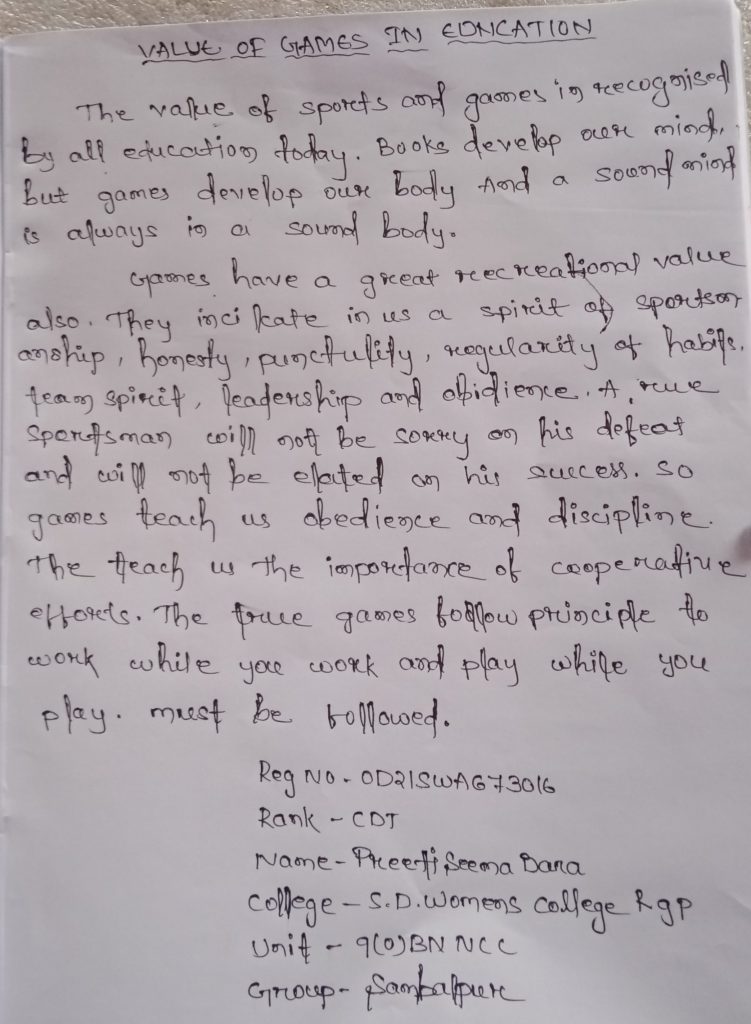 VALUE OF GAMES IN EDUCATION
The value of sports and games is recognised
by all education today. Books develop our mind,
but games develop our body And a sound mind
is always in a sound body.
Games have a great recreational value
also. They incilkate in us a spirit of sportsm
anship, honesty, punctulity, regularity of habits.
team spirit, leadership and obidience. A true
Sportsman will not be sorry on his defeat
and will not be elated on his success. So
games teach us obedience and discipline.
The teach us the importance of cooperative
efforts. The true games follow principle to
work while you work and play while you
play. must be followed.
Reg No - OD21SWA673016
Rank - CDT
Name - Preeti Seema Bara
College - S.D. Womens College Rgp
Unit - 9(O)BN NCC
Group - Sambalpur